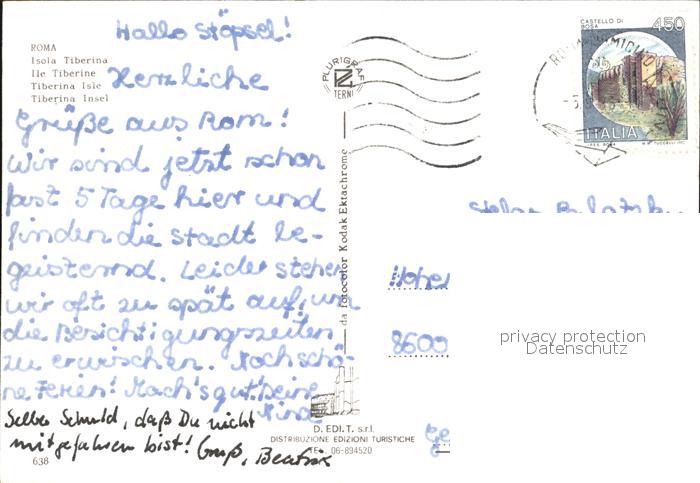 Hallo Stöpsel!
ROMA
Isola Tiberina
Ile Tiberine
Tiberina Isle
Tiberina Insel
Herzliche
Grüße aus Rom!
Wir sind jetzt schon
fast 5 Tage hier und
finden die Stadt be-
geisternd. Leider stehen
wir oft zu spät auf, um
die Besichtigungszeiten
zu erwischen. Noch schö-
ne Ferien! Mach's gut! Deine
Nina
Selber Schuld, daß Du nicht
mitgefahren bist! Gruß, Beatrix
638
PLURIGRAF
TERNI
da fotocolor Kodak Ektachrome
D. EDI.T. s.r.l.
DISTRIBUZIONE EDIZIONI TURISTICHE
TEL. 06-894520
CASTELLO DI
BOSA
450
ITALIA
8600
privacy protection
Datenschutz